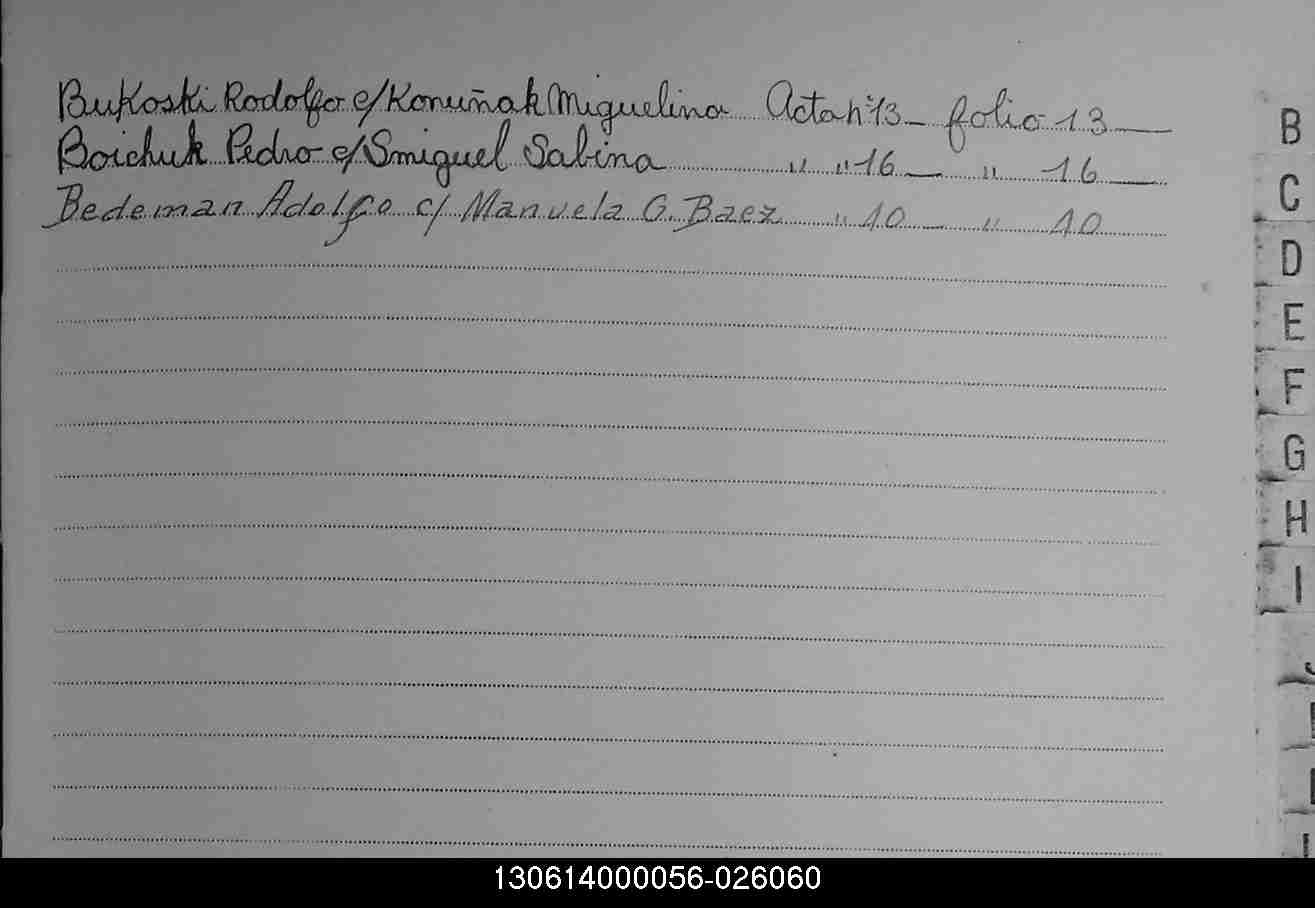 Bukoski Rodolfo c/Konuñak Miguelina Acta nº 13 - folio 13
Boichuk Pedro c/Smiguel Sabina " " 16 - " 16
Bedeman Adolfo c/ Manuela G. Baez " 10 - " 10
B
C
D
E
F
G
H
I
130614000056-026060